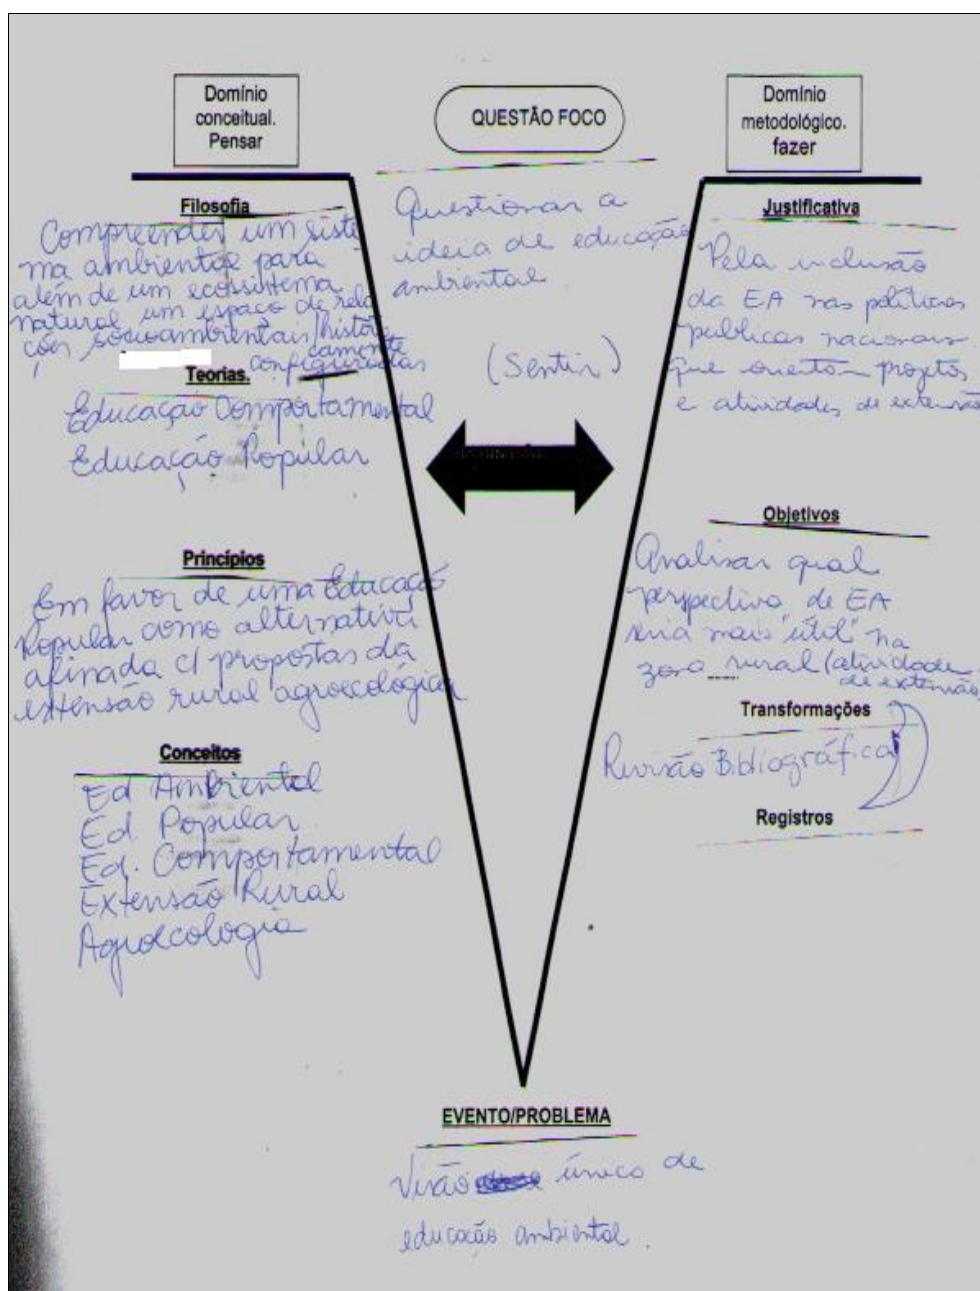 Domínio
conceitual.
Pensar
Filosofia
Compreender um siste
ma ambiental para
além de um ecossistema
natural um espaço de rela
ções socioambientais/histori
camente
configuradas
Teorias.
Educação Comportamental
Educação Popular
Princípios
Em favor de uma Educação
Popular como alternativa
afinada c/ propostas da
extensão rural agroecológica
Conceitos
Ed Ambiental
Ed. Popular
Ed. Comportamental
Extensão Rural
Agroecologia
QUESTÃO FOCO
Questionar a
ideia de educação
ambiental
(Sentir)
Domínio
metodológico.
fazer
Justificativa
Pela inclusão
da EA nas políticas
públicas nacionais.
que orientam projetos
e atividades de extensão
Objetivos
Analisar qual
perspectiva de EA
seria mais "útil" na
zona rural (atividade
de extensão)
Transformações
Revisão Bibliográfica
Registros
EVENTO/PROBLEMA
Visão único de
educação ambiental.